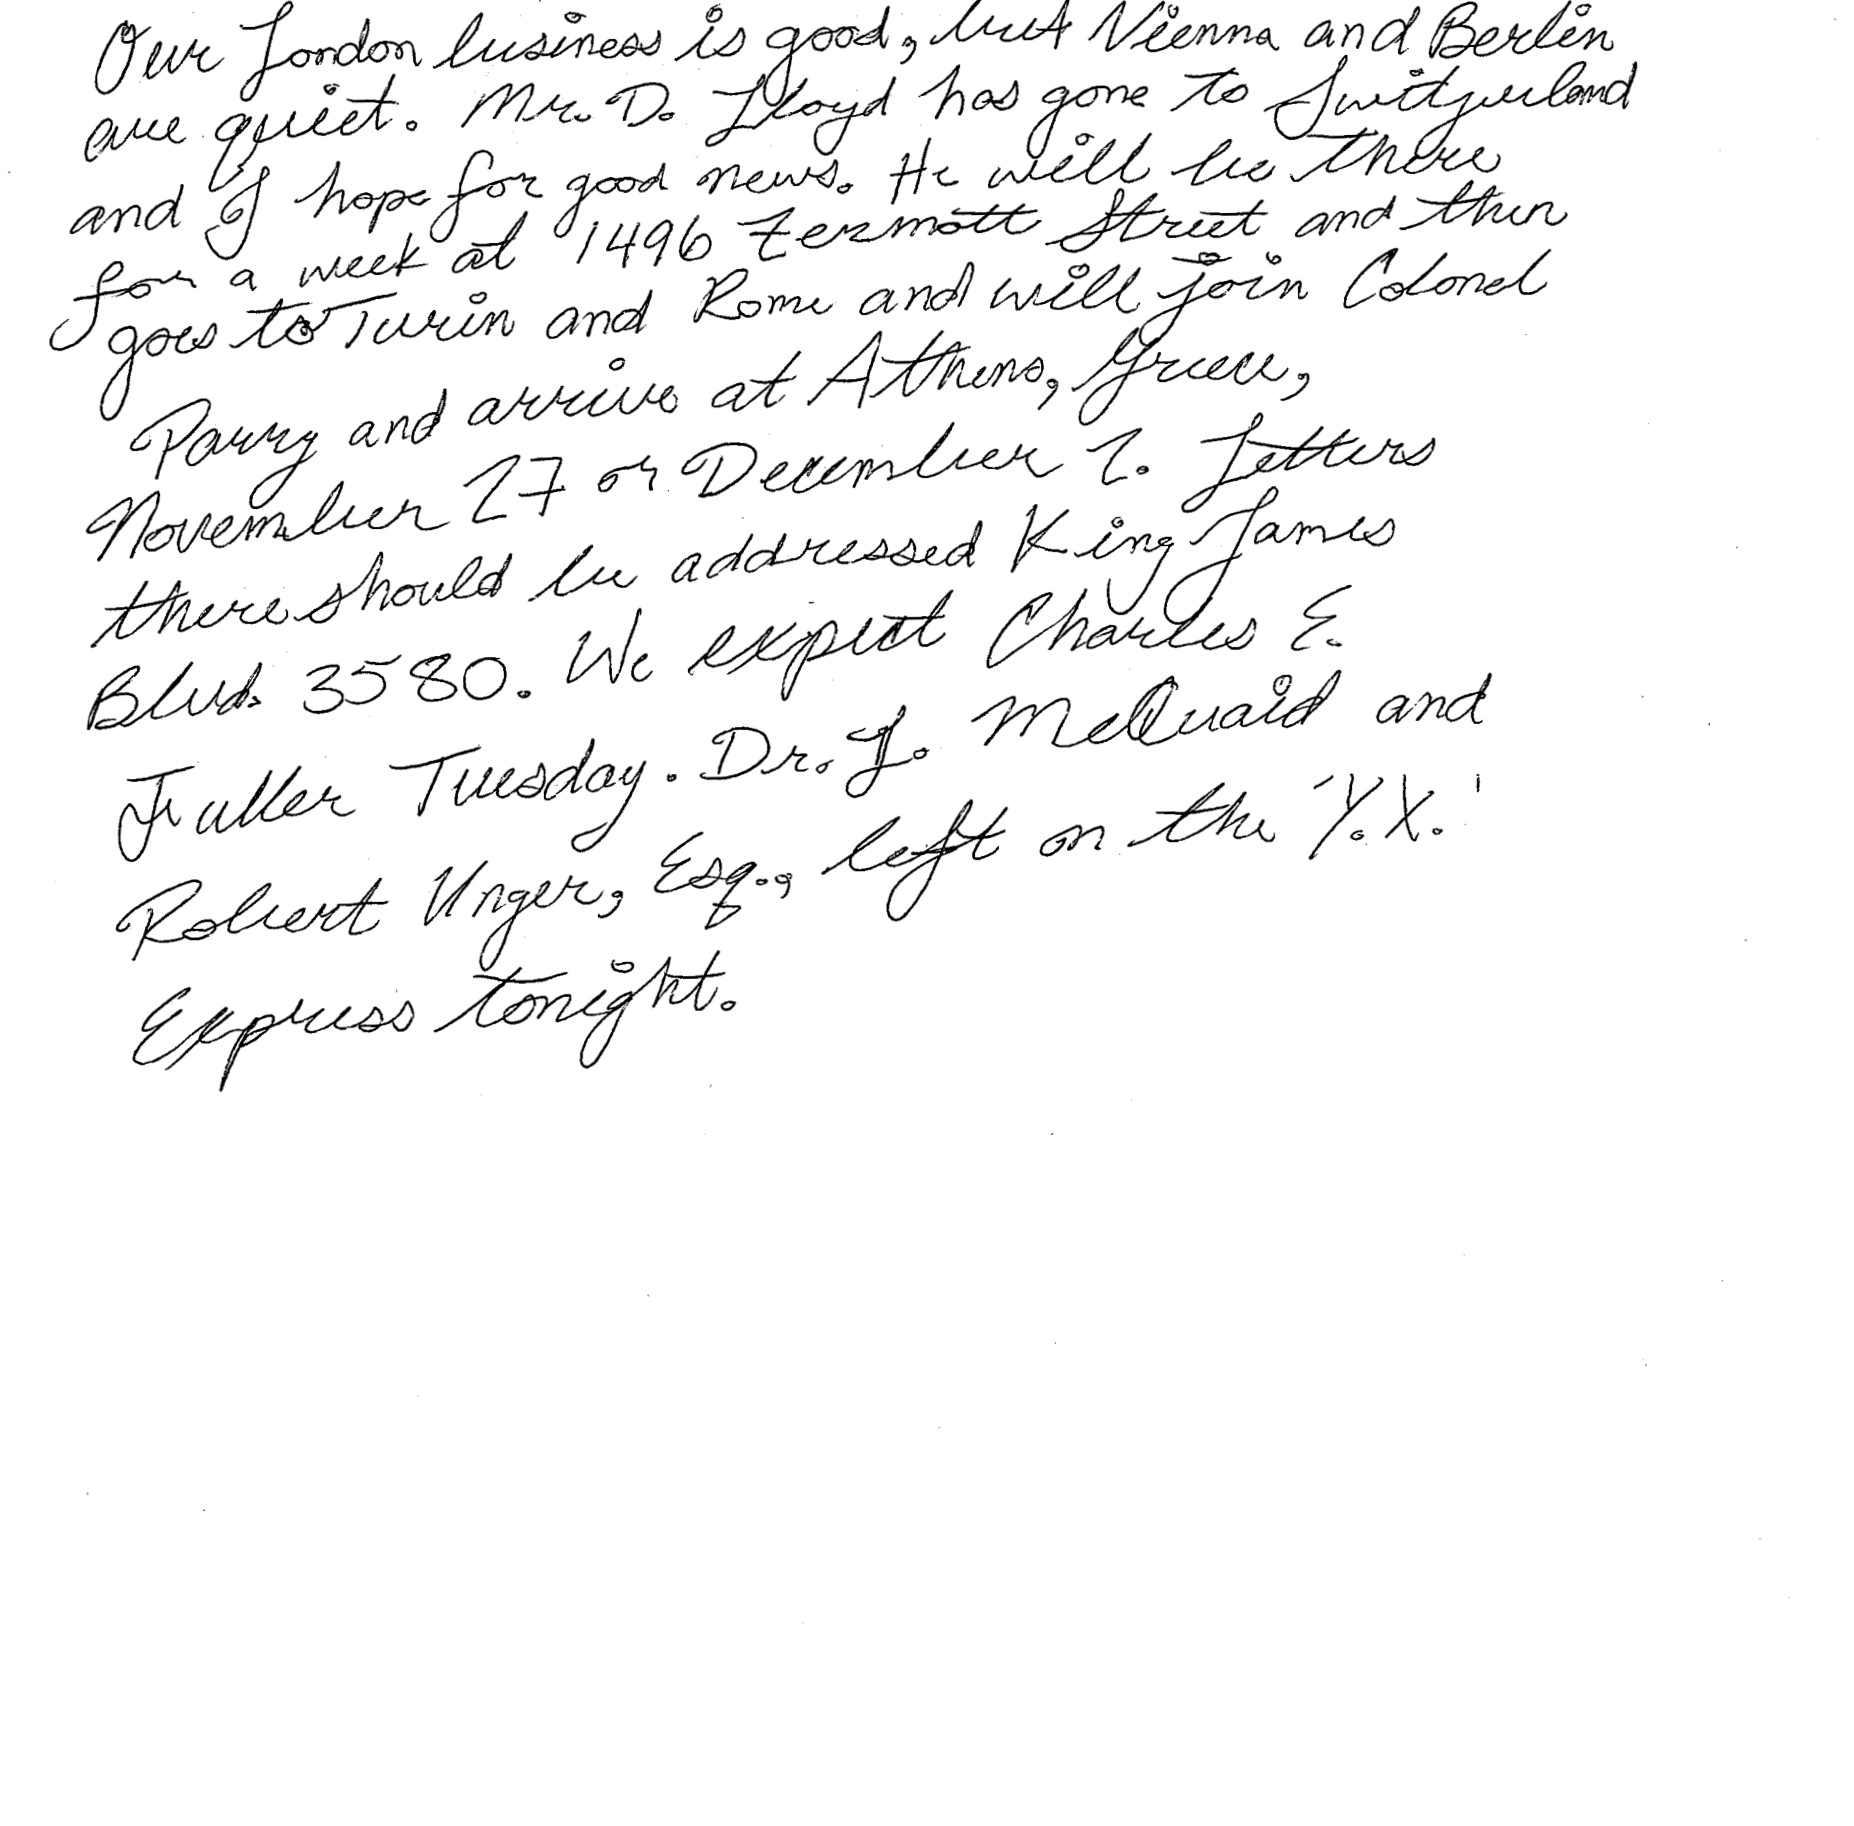 Our London business is good, but Vienna and Berlin
are quiet. Mr. D. Lloyd has gone to Switzerland
and I hope for good news. He will be there
for a week at 1496 Zermott Street and then
goes to Turin and Rome and will join Colonel
Parry and arrive at Athens, Greece,
November 27 or December 2. Letters
there should be addressed King James
Blvd. 3580. We expect Charles E.
Fuller Tuesday. Dr. L. McQuaid and
Robert Unger, Esq., left on the 'Y.X.'
Express tonight.